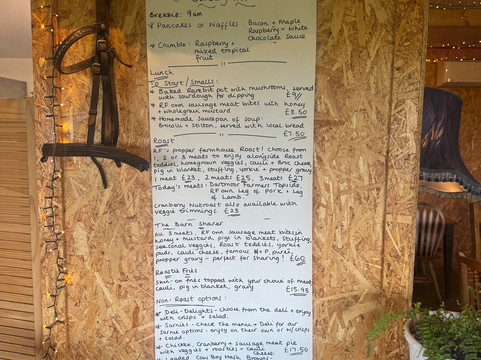 Brekkie: 9am
* Pancakes or Waffles: Bacon + Maple
Raspberry + White
Chocolate Sauce
* Crumble: Raspberry +
mixed tropical
fruit
Lunch
To Start / Smalls:
* Baked Rarebit pot with mushrooms, served
with sourdough for dipping £9
* RF own sausage meat bites with honey
+ wholegrain mustard £8.50
* Homemade Saucepan of soup:
Brocolli + Stilton, served with local bread
£7.50
Roast
RF's propper farmhouse Roast! Choose from
1, 2 or 3 meats to enjoy alongside Roast
teddies, homegrown veggies, cauli + Broc cheese,
pig in blanket, stuffing, yorkie + propper gravy
1 meat £23, 2 meats £25, 3 meats £27
Today's meats: Dartmoor Farmers Topside,
RF own Leg of Pork + Leg
of Lamb.
Cranberry Nutroast also available with
veggie trimmings £23
The Barn Sharer
All 3 meats, RF own sausage meat bites in
honey + mustard, pigs in blankets, stuffing,
seasonal veggies, Roast teddies, yorkie
puds, cauli cheese, famous puree,
propper gravy - perfect for sharing! £60
Roastie Fries
Skin-on fries topped with your choice of meat
cauli, pig in blanket, gravy £15.45
Non-Roast options:
* Deli-Delights - choose from the deli + enjoy
with crisps + salad
* Sarnies - check the menu + Deli for our
Sarnie options - enjoy on their own or w/ crisps
+ salad
* Chicken, Cranberry + sausage meat pie
with veggies + roasties + cauli cheese £17.50
Loaded Cow Boy Hash Browns: